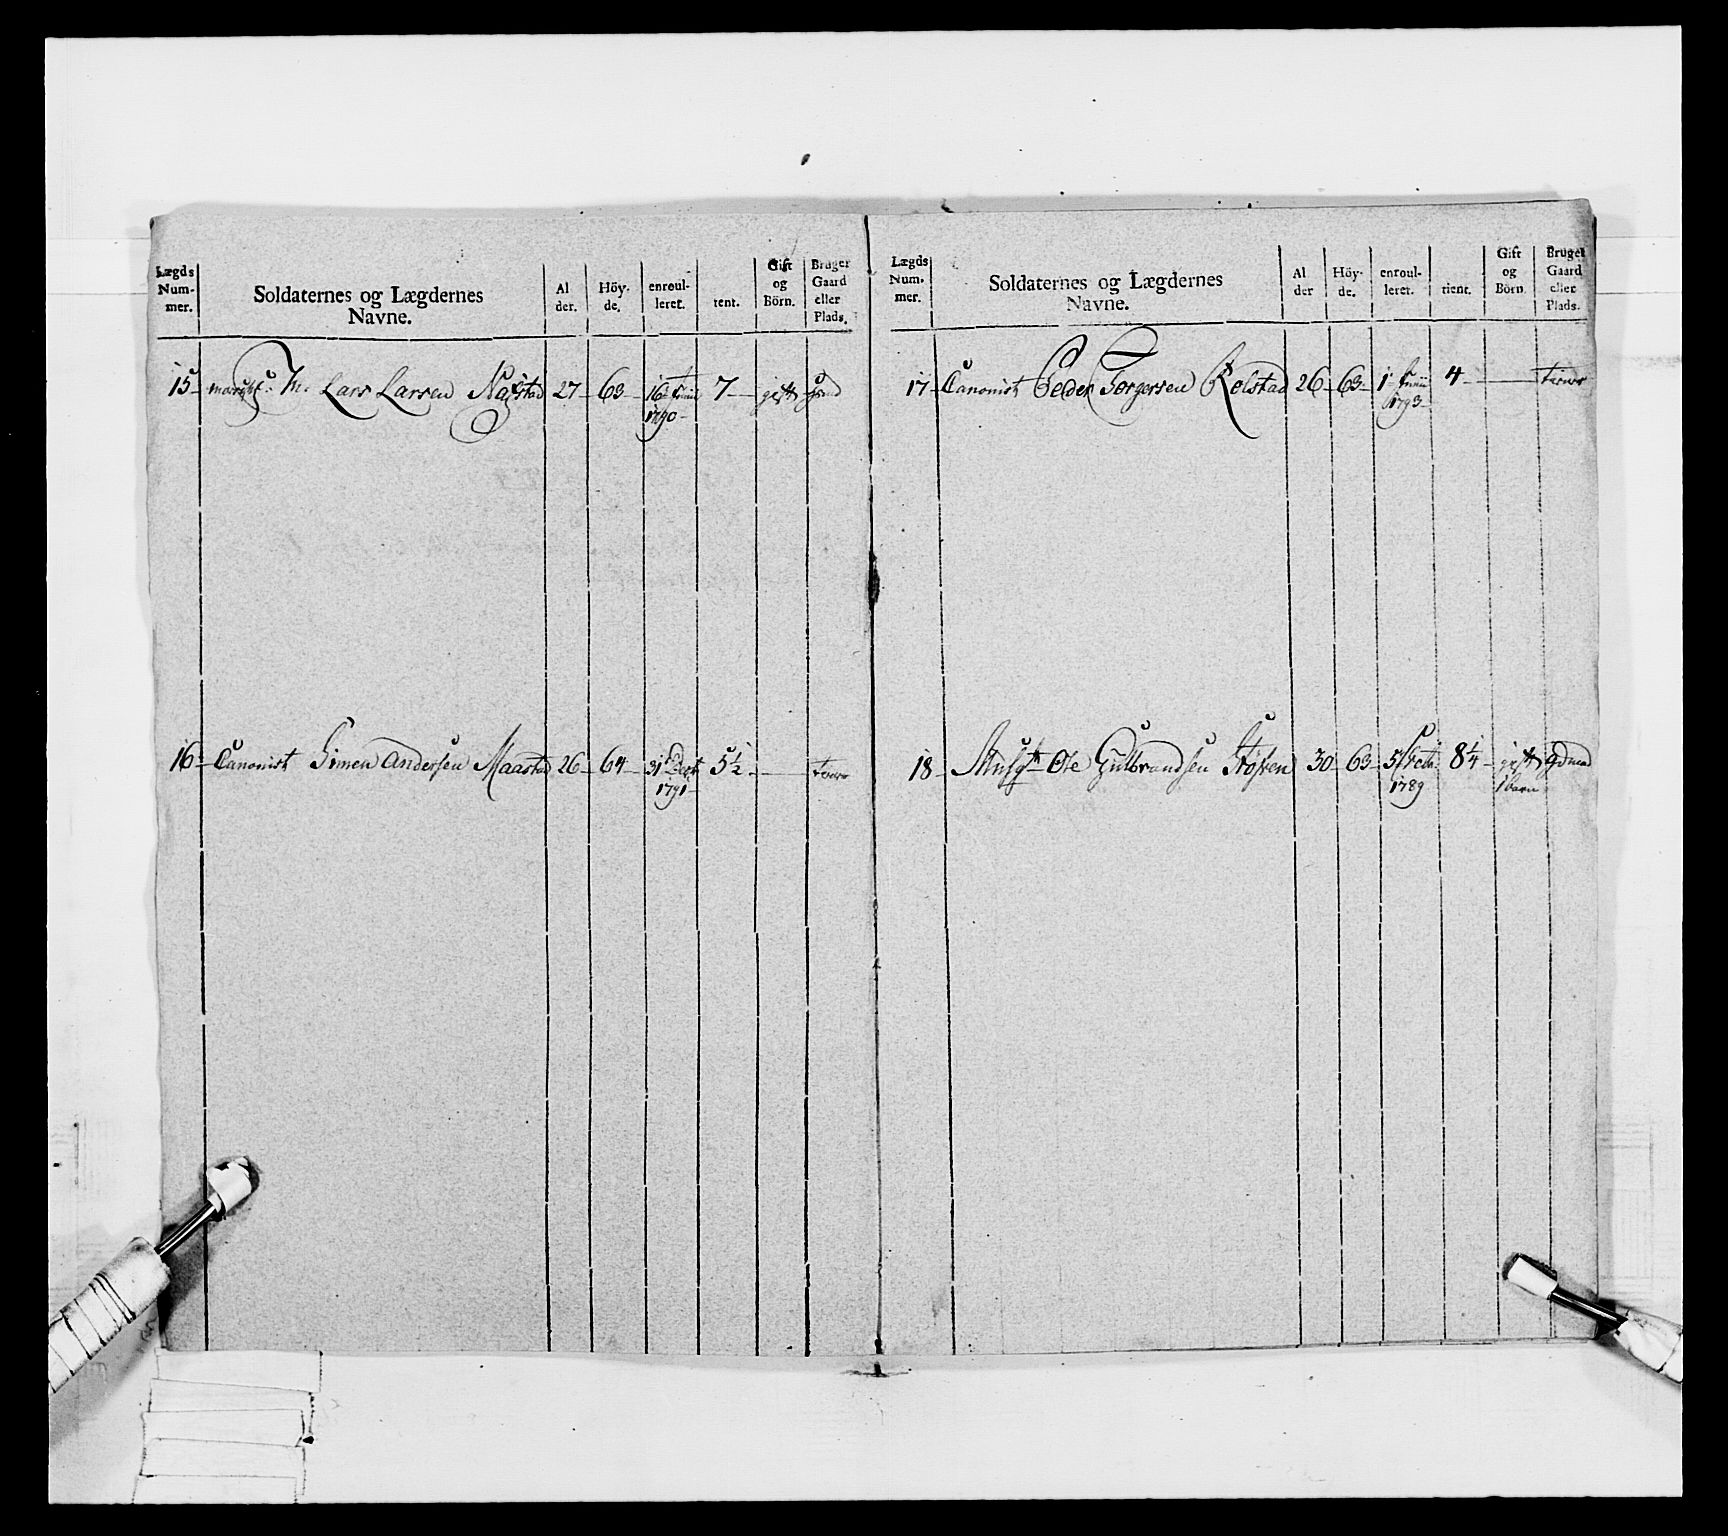 Lægds Num- mer.
Soldaternes og Lægdernes Navne.
Al der.
Höy- de.
enroul- leret.
tient.
Gift og Börn.
Bruger Gaard eller Plads.
15 Lars Larsen 27 63 16 Junii 7 gift
1790
16 Canonist Simen Andersen Maastad 26 64 31 1791 5½
Lægds Num- mer.
Soldaternes og Lægdernes Navne.
Al der
Höy- de.
enroul- leret.
tient.
Gift og Börn
Bruger Gaard eller Plads.
17 Canonist Peder Torgersen Rolstad 26 63 1 Junii 4
1793
18 Musqt Ole Gulbrandsen 30 63 5 8¼ gift
1789 1 barn